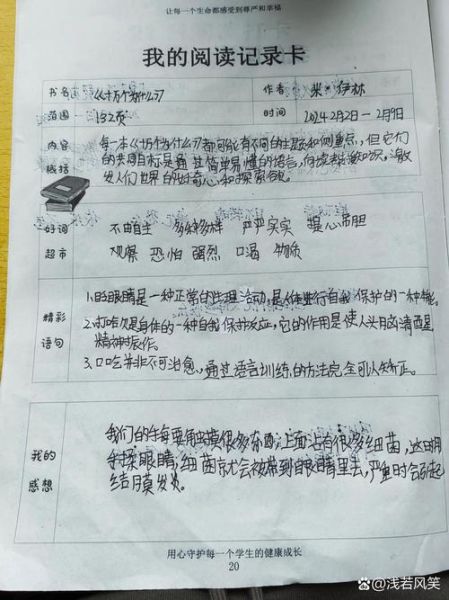 让每一个生命都感受到尊严和幸福
我的阅读记录卡
书名 《十万个为什么》 作者 米·伊林
范围 132页 时间 2024年2月2日—2月9日
内容概括
每一本《十万个为什么》都可能有不同的主题和侧重点,但它们
的共同目标是通过简单易懂的语言,向读者
发人们世界的好奇心和探索欲。
好词超市
不由自主 多种多样 严严实实 提心吊胆
观察 恐怕 强烈 口渴 物质
精彩语句
1.眨眼睛是一种正常的生理活动,是人体进行自我保护的一种
2.打哈欠是身体的一种自我保护反应,它的作用是使人头脑清醒
精神振作。
3.口吃并非不可治愈,通过语言训练的方法完全可以矫正。
我的感想
我们的手每天要触摸很多东西,上面沾有很多细菌,这时用
手揉眼睛,细菌就会被带到眼睛里去,严重时会引起
结膜发炎。
用心守护每一个学生的健康成长
20
@浅若风笑